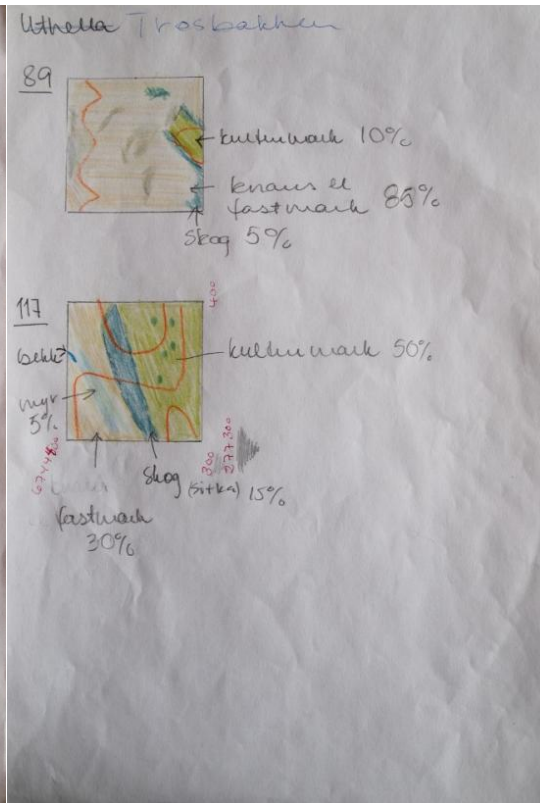 Uthella Trosbakken
89
kulturmark 10%
knaus el
fastmark 85%
Skog 5%
117
400
bekk
kulturmark 50%
myr
5%
300
277300
Skog (sitka) 15%
fastmark
30%